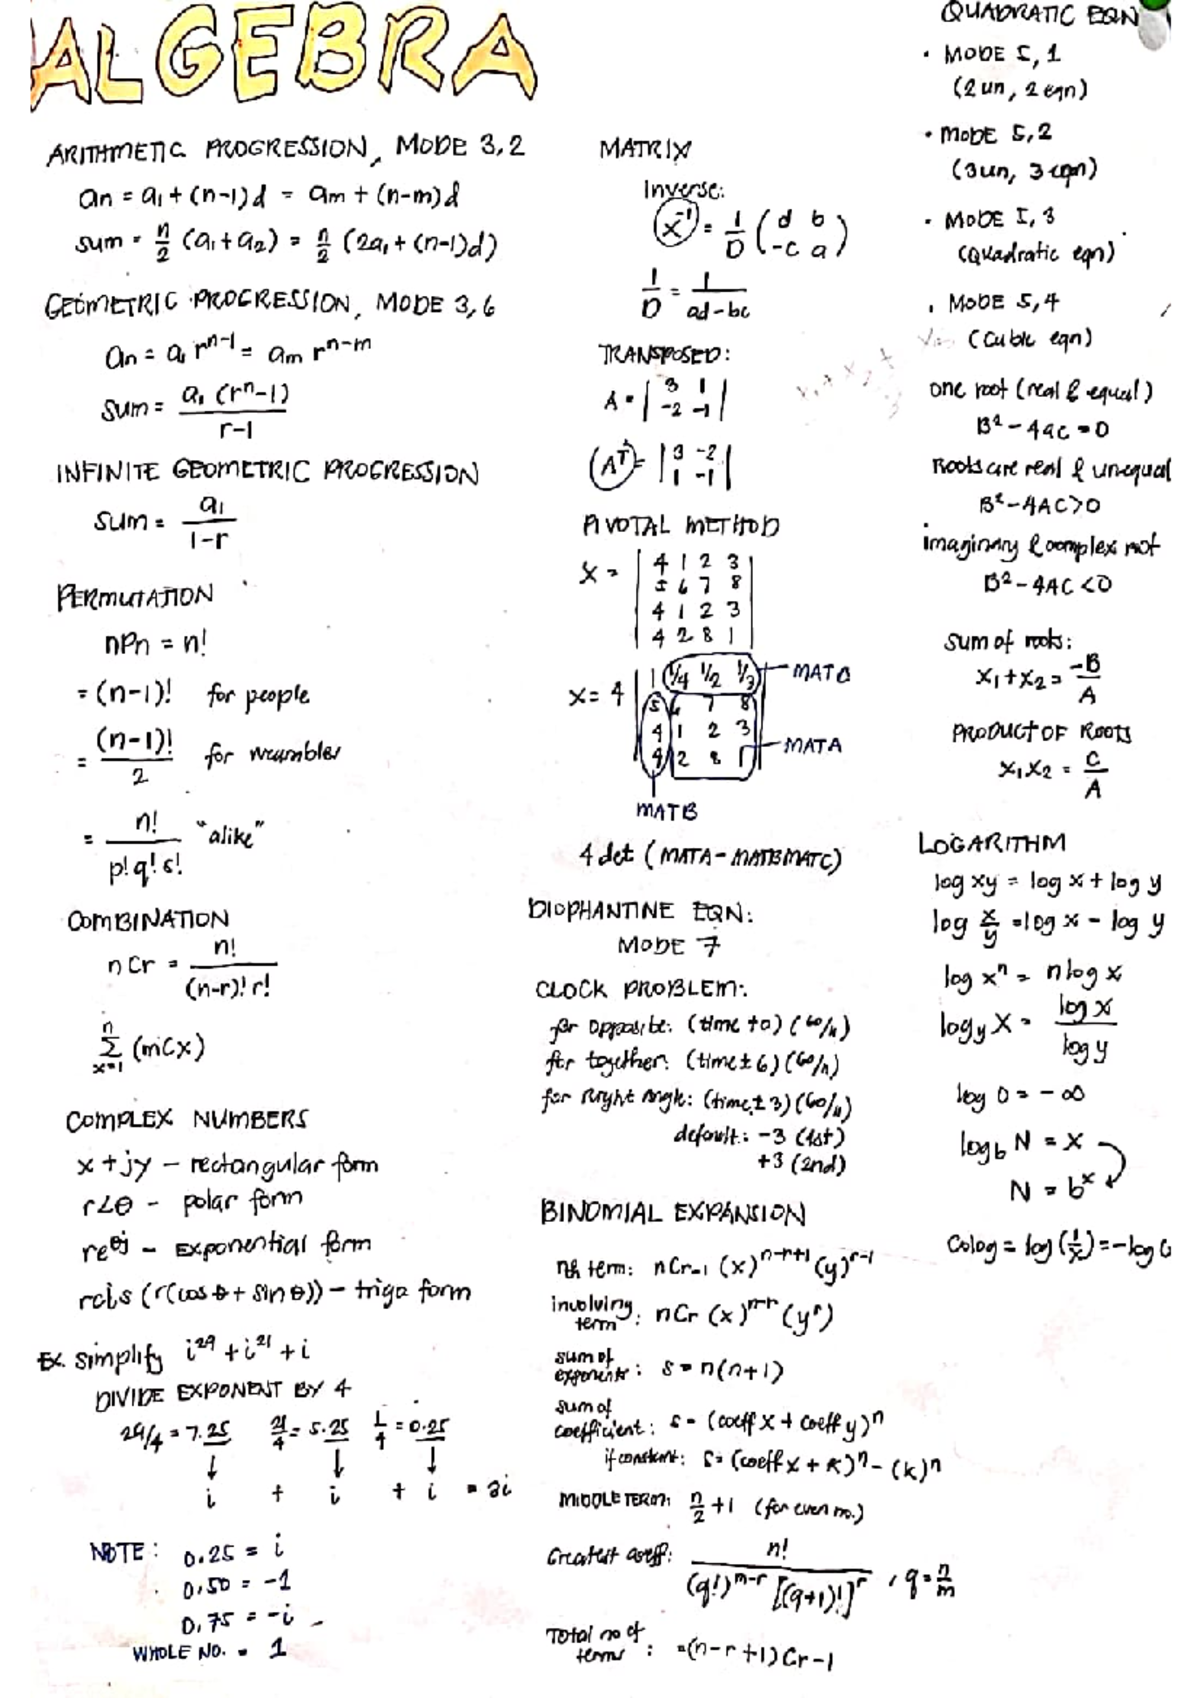 ALGEBRA
ARITHMETIC PROGRESSION, MODE 3,2
an = a1 + (n-1)d = am + (n-m)d
sum = n/2 (a1 + a2) = n/2 (2a1 + (n-1)d)
GEOMETRIC PROGRESSION, MODE 3,6
an = a1 r^n-1 = am r^n-m
sum = a1 (r^n - 1) / r-1
INFINITE GEOMETRIC PROGRESSION
sum = a1 / 1-r
PERMUTATION
nPn = n!
= (n-1)! for people
= (n-1)! / 2 for
= n! / p!q!s! "alike"
COMBINATION
nCr = n! / (n-r)! r!
n Σ x=1 (mCx)
COMPLEX NUMBERS
x + jy - rectangular form
r∠θ - polar form
re^θj - EXPONENTIAL form
rcis (r(cos θ + sin θ)) - trigo form
Ex. simplify i^29 + i^21 + i
DIVIDE EXPONENT BY 4
29/4 = 7.25 21/4 = 5.25 1/4 = 0.25
↓ ↓ ↓
i + i + i = 3i
NOTE: 0.25 = i
0.50 = -1
0.75 = -i
WHOLE NO. = 1
MATRIX
Inverse:
x^-1 = 1/D (d b
-c a)
1/D = 1 / ad-bc
TRANSPOSED:
A = | 3 1 |
| -2 -1 |
(A^T) = | 3 -2 |
| 1 -1 |
PIVOTAL METHOD
X = | 4 1 2 3 |
| 5 6 7 8 |
| 4 1 2 3 |
| 4 2 8 1 |
X = 4 | 1 1/4 1/2 1/3 | MATC
| 5 6 7 8 |
| 4 1 2 3 | MATA
| 4 2 8 1 |
MATB
4 det (MATA - MATBMATC)
DIOPHANTINE EQN:
MODE 7
CLOCK PROBLEM:
for opposite: (time ± 0) (60/11)
for together: (time ± 6) (60/11)
for Right Angle: (time ± 3) (60/11)
default: -3 (1st)
+3 (2nd)
BINOMIAL EXPANSION
nth term: nCr-1 (x)^n-r+1 (y)^r-1
involving term: nCr (x)^n-r (y^r)
sum of exponents: s = n(n+1)
sum of coefficient: s = (coeff x + coeff y)^n
if constant: s = (coeff x + k)^n - (k)^n
MIDDLE TERM: n/2 + 1 (for even no.)
Greatest coeff: n! / (q!)^m-r [(q+1)!]^r , q = n/m
Total no of terms: = (n-r+1) Cr-1
QUADRATIC EQN
• MODE 5, 1
(2 un, 2 eqn)
• MODE 5, 2
(3 un, 3 eqn)
• MODE 5, 3
(Quadratic eqn)
• MODE 5, 4
(Cubic eqn)
one root (real & equal)
B² - 4ac = 0
Roots are real & unequal
B² - 4AC > 0
imaginary & complex
B² - 4AC < 0
Sum of roots:
x1 + x2 = -B/A
PRODUCT OF ROOTS
x1 x2 = C/A
LOGARITHM
log xy = log x + log y
log x/y = log x - log y
log x^n = n log x
logy X = log x / log y
log 0 = -∞
logb N = x
N = b^x
Colog = log (1/x) = -log